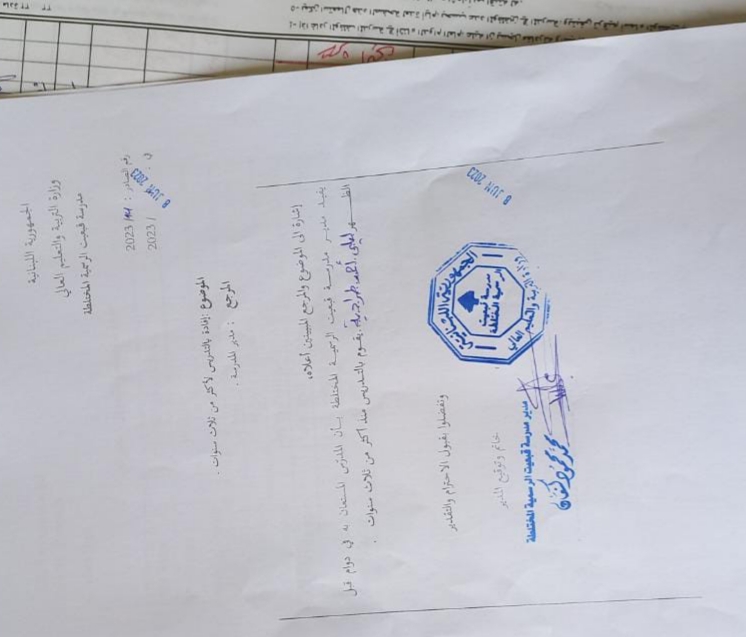 الجمهورية اللبنانية
وزارة التربية والتعليم العالي
مدرسة قبعيت الرسمية المختلطة
رقم الصادر : /2023
8 JUN 2023
في : /2023
الموضوع : إفادة بالتدريس لأكثر من ثلاث سنوات .
المرجع : مدير المدرسة .
إشارة الى الموضوع والمرجع المبينين أعلاه،
يفيد مدير مدرسة قبعيت الرسمية المختلطة بأن المدرّس المستعان به في دوام قبل
الظهر يقوم بالتدريس منذ أكثر من ثلاث سنوات .
وتفضلوا بقبول الاحترام والتقدير
خاتم وتوقيع المدير
8 JUN 2023
الجمهورية اللبنانية
وزارة التربية والتعليم العالي
مدرسة قبعيت
الرسمية المختلطة
مدير مدرسة قبعيت الرسمية المختلطة
محمد محمود كنعان